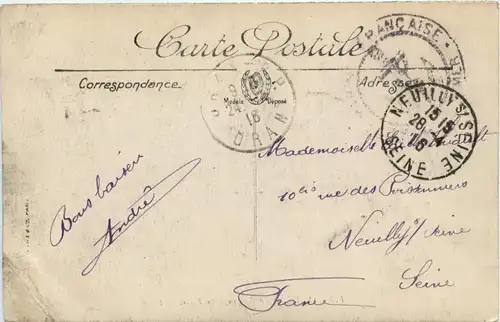 Carte Postale
Correspondance
Adresse
Modèle Déposé
ORAN
16
RANÇAISE
NEUILLY S/ SEINE
SEINE
Bons baisers
André
Mademoiselle
10 bis rue des Poissonniers
Neuilly s/ Seine
Seine
France